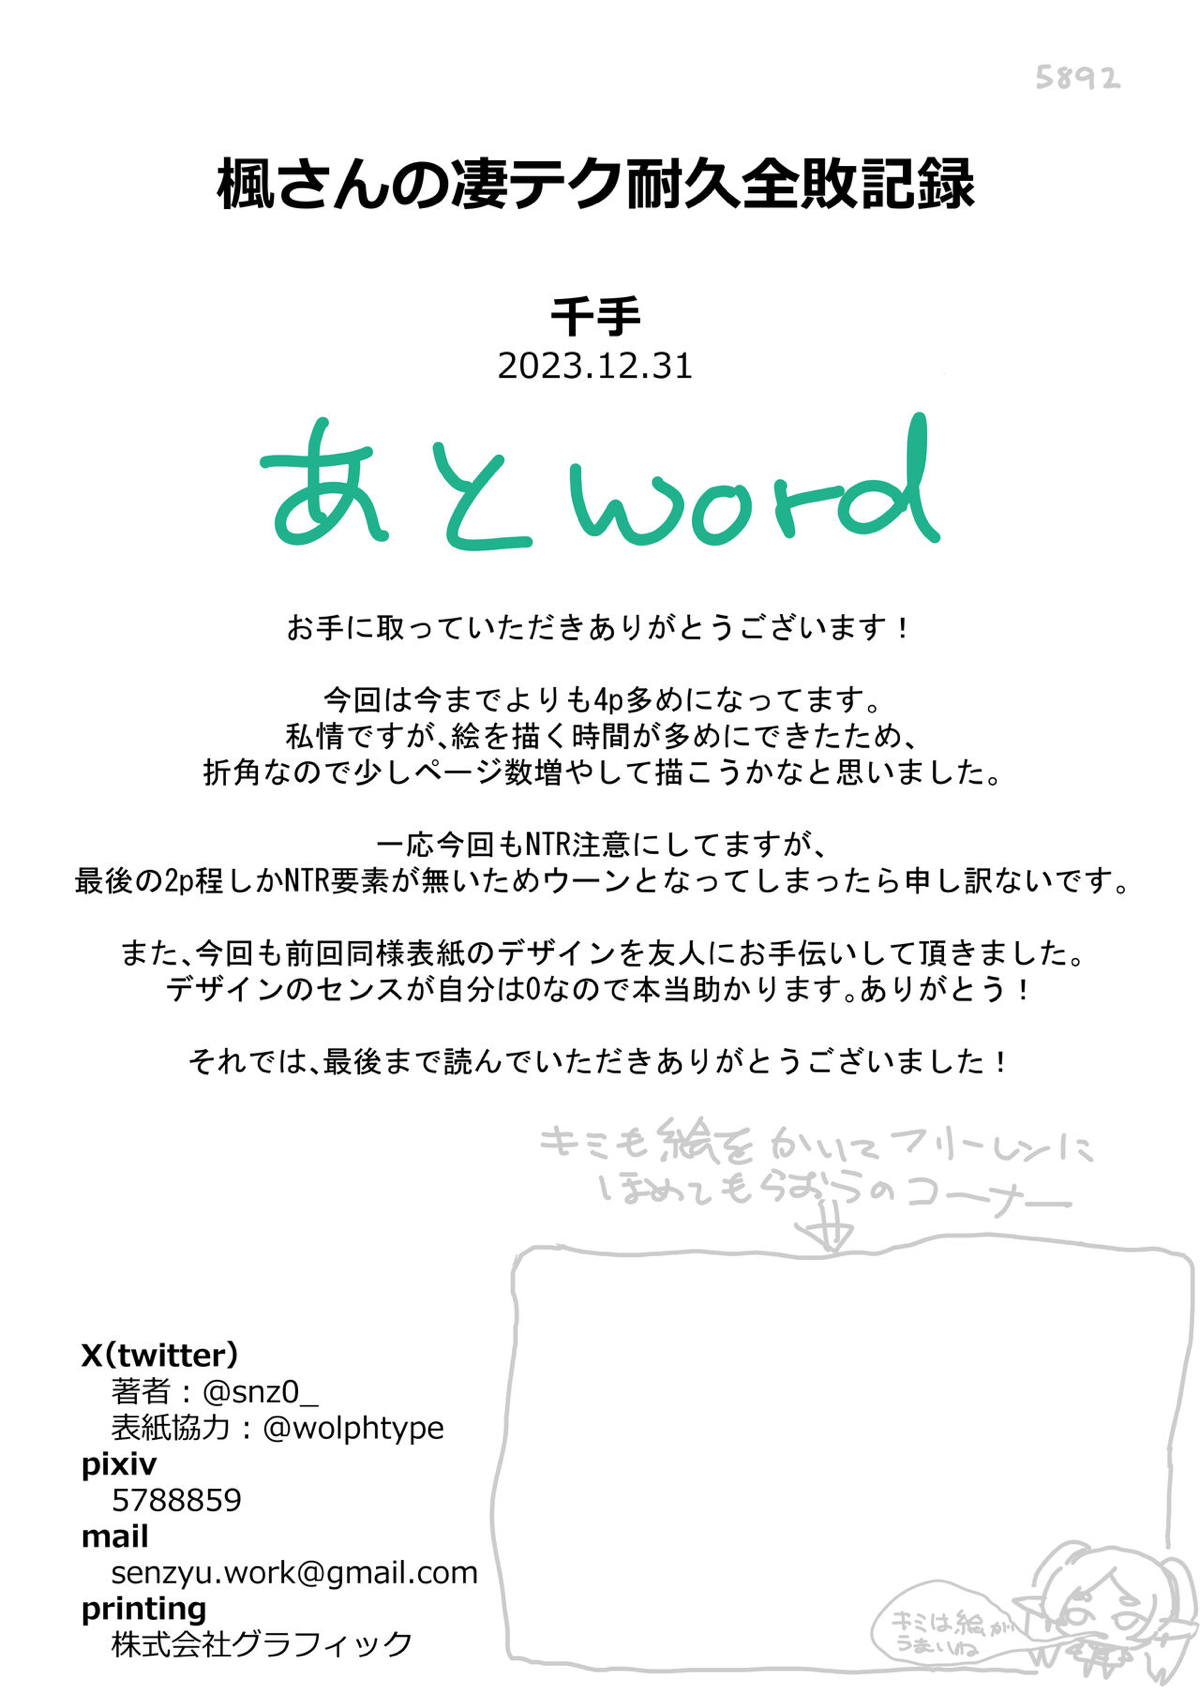 5892
楓さんの凄テク耐久全敗記録
千手
2023.12.31
あとword
お手に取っていただきありがとうございます！
今回は今までよりも4p多めになってます。
私情ですが､絵を描く時間が多めにできたため､
折角なので少しページ数増やして描こうかなと思いました。
一応今回もNTR注意にしてますが､
最後の2p程しかNTR要素が無いためウーンとなってしまったら申し訳ないです。
また､今回も前回同様表紙のデザインを友人にお手伝いして頂きました。
デザインのセンスが自分は0なので本当助かります｡ありがとう！
それでは､最後まで読んでいただきありがとうございました！
キミも絵をかいてフリーレンに
ほめてもらおうのコーナー
X(twitter)
著者：@snz0_
表紙協力：@wolphtype
pixiv
5788859
mail
senzyu.work@gmail.com
printing
株式会社グラフィック
キミは絵が
うまいね